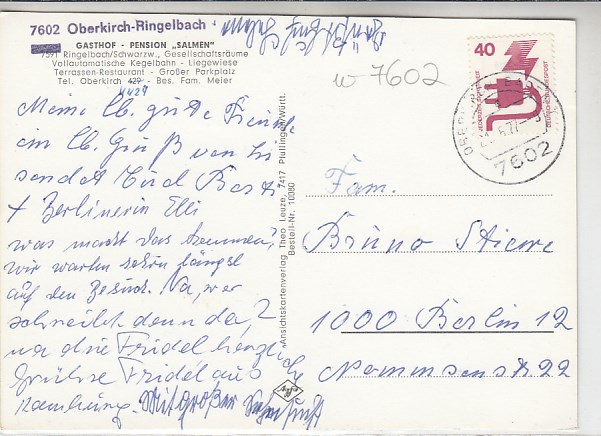 7602 Oberkirch-Ringelbach
GASTHOF - PENSION „SALMEN"
7591 Ringelbach/Schwarzw., Gesellschaftsräume
Vollautomatische Kegelbahn - Liegewiese
Terrassen-Restaurant - Großer Parkplatz
Tel. Oberkirch 429 - Bes. Fam. Meier
4429
Meine lb. gute Freunde
ein lb. Gruß von hi
sendet Eud Berti
+ Berlinerin Elli
was macht das kommen?
wir warten schon längst
auf den Besuch. Na, wer
schreibt denn da?
na die Friedel herzliche
Grüße Friedel aus
Hamburg. Mit großer Sehnsucht
Ansichtskartenverlag Theo Leuze, 7417 Pfullingen/Württ.
Bestell-Nr. 10080
w 7602
40
DEUTSCHE BUNDESPOST
7602
Fam.
Bruno Stiewe
1000 Berlin 12
Mommsenstr 22